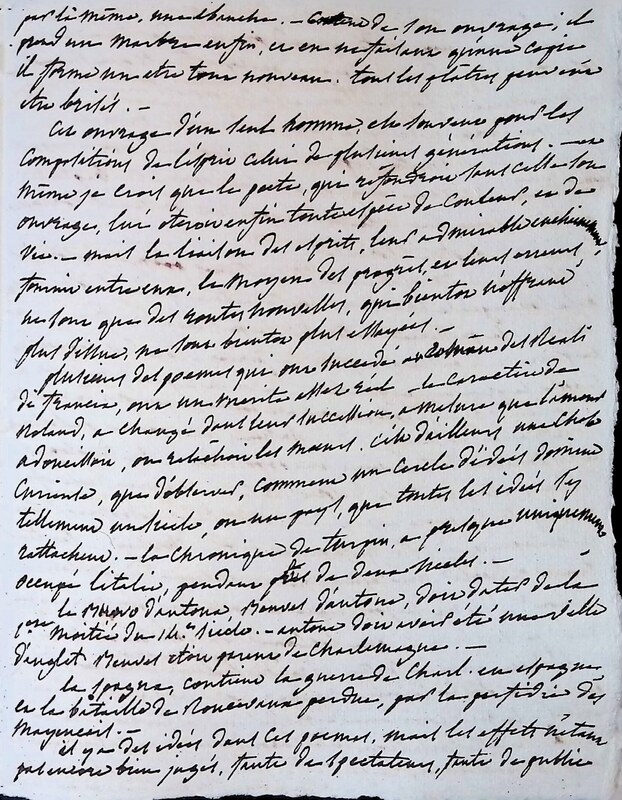 par là même, une ébauche. — de son ouvrage; il
prend un marbre enfin, et en ne faisant qu'une copie
il forme un etre tout nouveau. tous les plâtres peuvent
etre brisés. —
Cet ouvrage d'un seul homme, est souvent pour les
compositions de l'esprit celui de plusieurs générations. — et
même je crois que le poete, qui refondroit sous cesse son
ouvrage, lui oteroit enfin toute espèce de couleur, et de
vie. — mais la liaison des esprits, leur admirable
fournit entr'eux, le moyen des progrès, et leurs erreurs,
ne sont que des routes nouvelles, qui bientot n'offrant
plus d'issue, ne sont bientot plus essayées. —
plusieurs des poemes qui ont succédé au des Reali
de francia, ont un merite assez réel — le caractère de
Roland, a changé dans leur succession, a mesure que l'amour
adoucissoit, ou relâchoit les mœurs. C'est d'ailleurs une chose
curieuse, que d'observer, comment un cercle d'idées domine
tellement un siècle, ou un pays, que toutes les idées s'y
rattachent. — la Chronique de turpin, a presque uniquement
occupé l'italie, pendant près de deux siecles. —
le Buovo d'antona Beuves d'antone, doit dater de la
1ere moitié du 14e siécle. — antone doit avoir été une ville
d'anglet. Beuves etoit parent de Charlemagne. —
la Spagna, contient la guerre de Charl. en espagne
et la bataille de Roncevaux perdue, par la perfidie des
mayençais. —
il y a des idées dans ces poemes, mais les effets n'étant
pas encore bien jugés, faute de spectateurs, faute de public